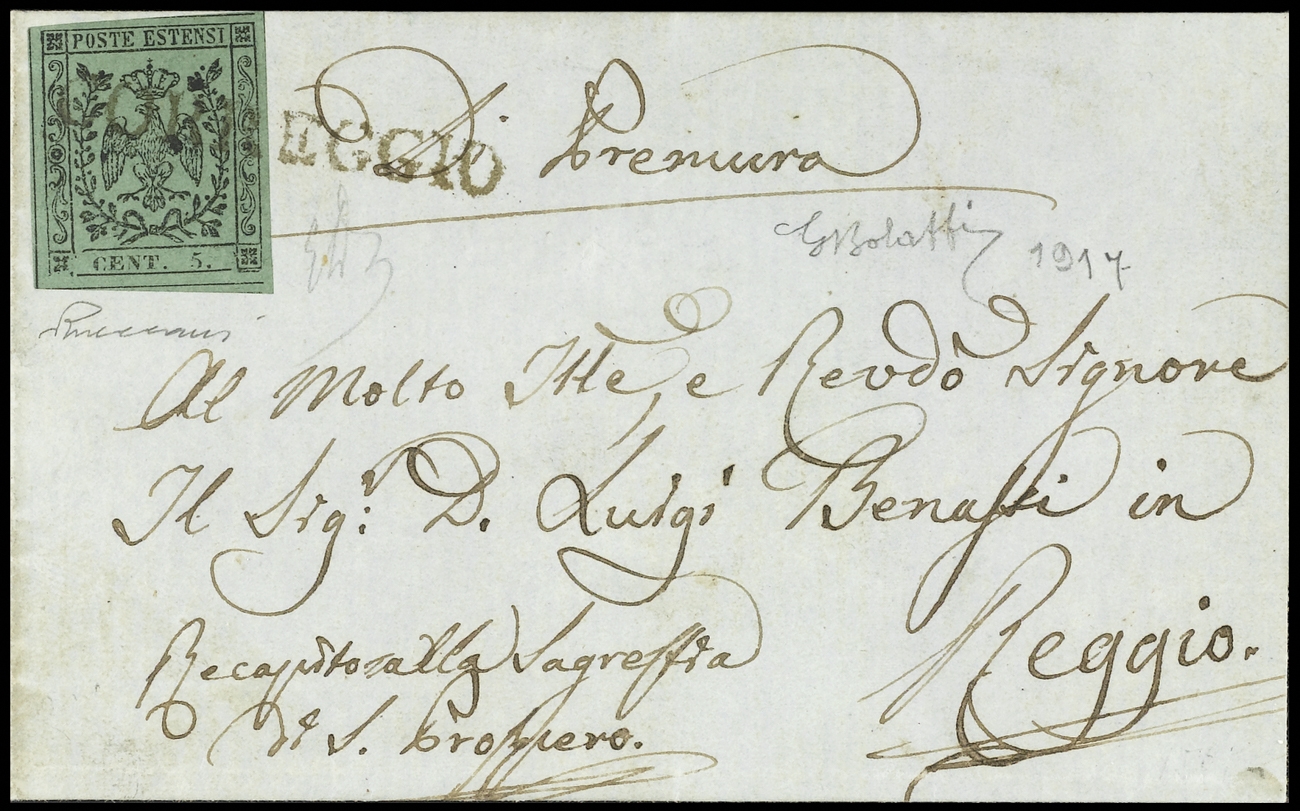 POSTE ESTENSI
CENT. 5.
CORREGGIO
Di Premura
GBolaffi 1917
Al Molto Ille, e Revdõ Signore
Il Sig:r D. Luigi Benassi in
Reggio.
Recapito alla Sagrestia
di S. Prospero.